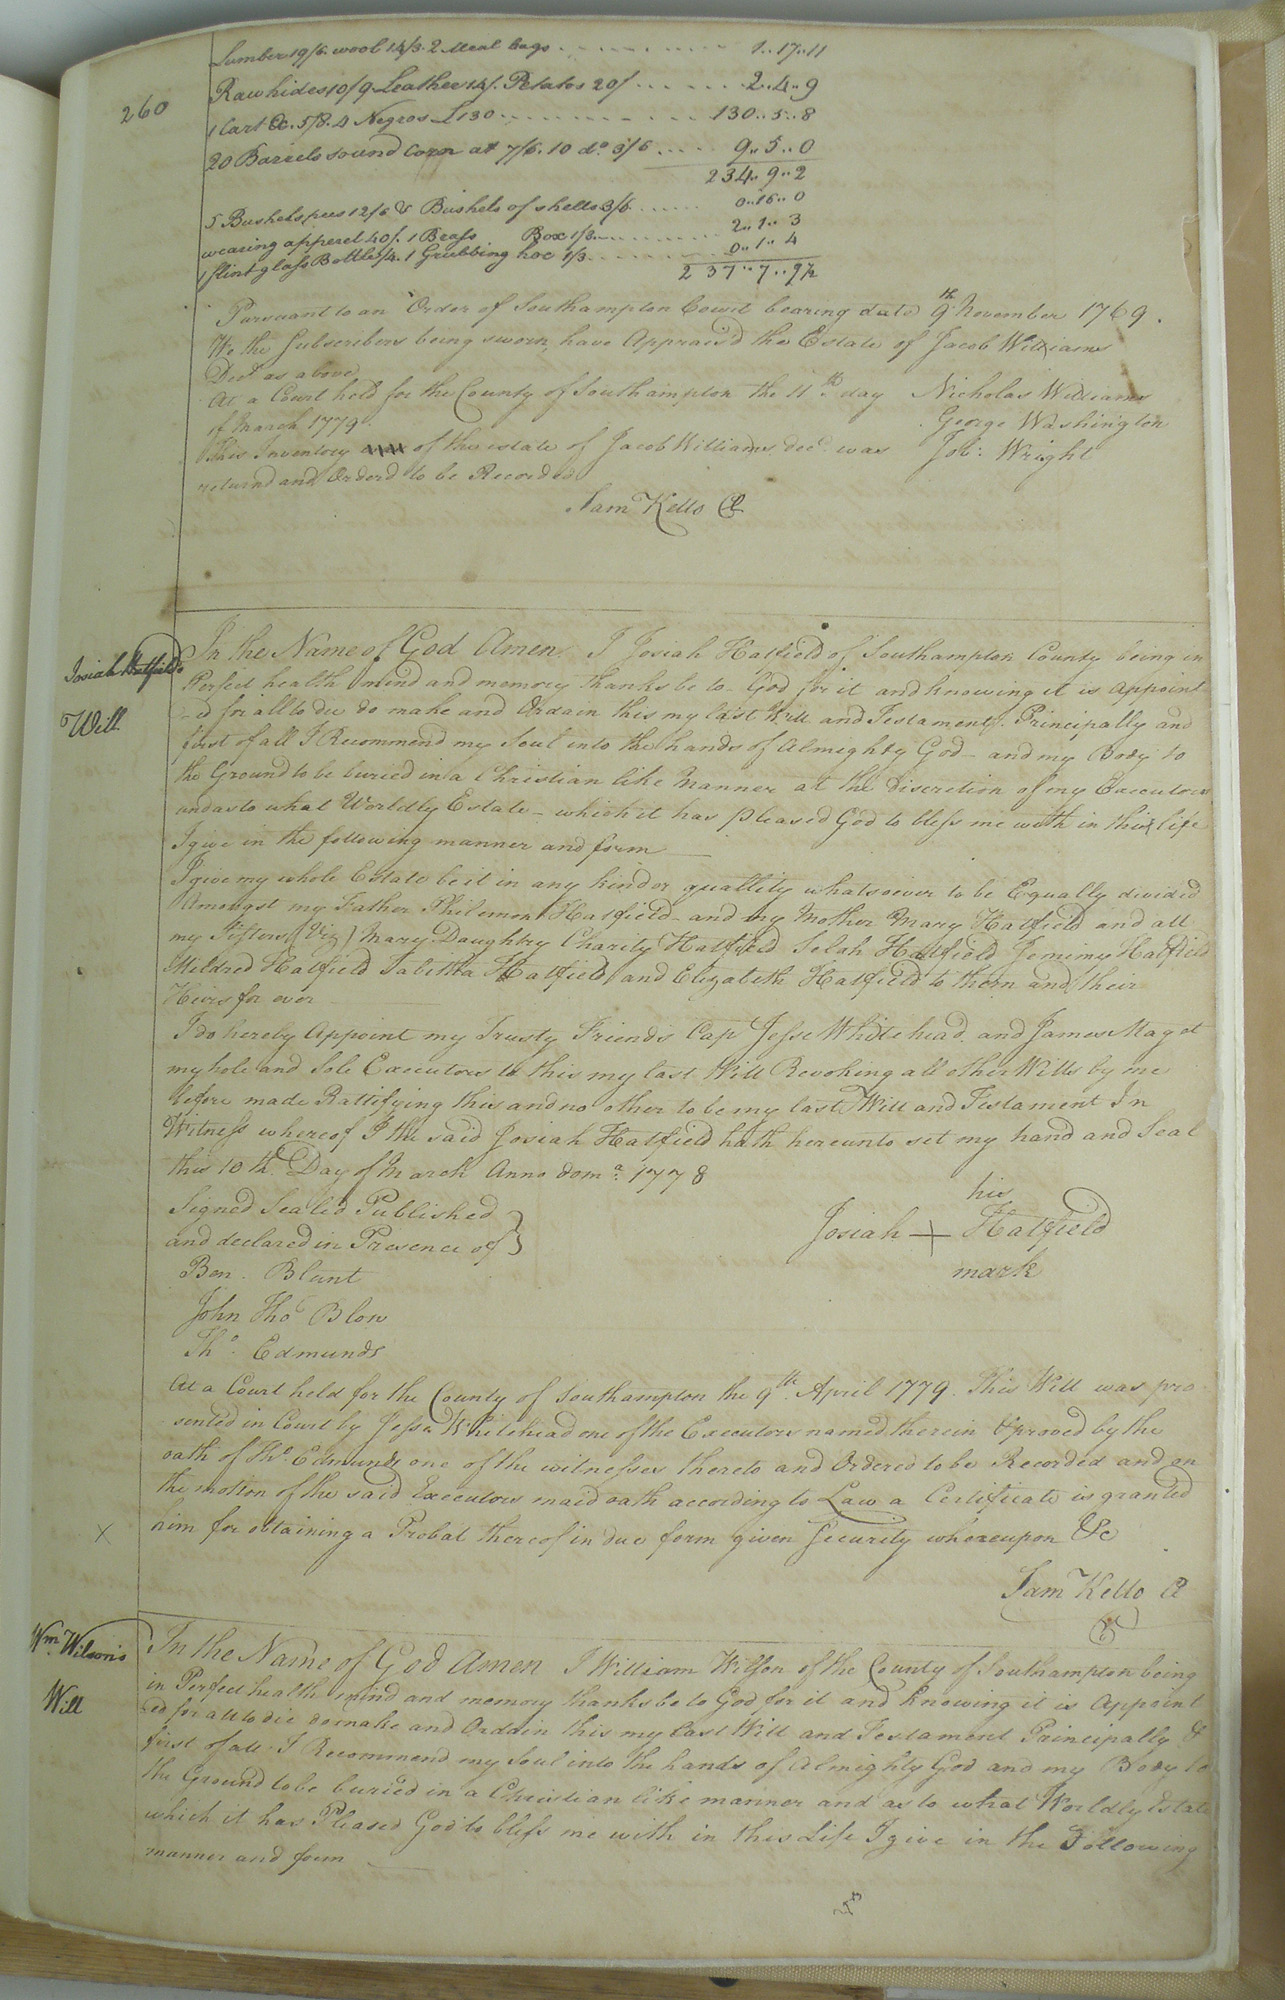 260
Lumber 19/6. wool 14/3. 2 Meal bags 1..17..11
Rawhides 10/9 Leather 14/. Potatos 20/ 2..4..9
1 Cart &c. 5/8. 4 Negros £130 130..5..8
20 Barrels sound Corn at 7/6. 10 do. 3/6 9..5..0
234..9..2
5 Bushels peas 12/6 & Bushels of shells 3/6 0..16..0
wearing apperel 40/. 1 Brass Box 1/3 2..1..3
1 flint glass Bottle /4. 1 Grubbing hoe 1/3 0..1..4
237..7..9½
Pursuant to an Order of Southampton Court bearing date 9th November 1769.
We the Subscribers being sworn, have Appraisd the Estate of Jacob Williams
Decd as above
Nicholas Williams
George Washington
Job: Wright
At a Court held for the County of Southampton the 11th day
of March 1779.
This Inventory of the estate of Jacob Williams decd. was
returnd and Orderd to be Recorded
Sam Kello Cl
Josiah Hatfields
Will
In the Name of God Amen. I Josiah Hatfield of Southampton County being in
Perfect health mind and memory thanks be to God for it and knowing it is Appoint
-d for all to die do make and Ordain this my last Will and Testament: Principally and
first of all I Recommend my Soul into the hands of Almighty God - and my Body to
the Ground to be buried in a Christian like Manner at the Discretion of my Executors
and as to what Worldly Estate - which it has pleased God to bless me with in this life
I give in the following manner and form
I give my whole Estate be it in any kind or quallity whatsoever to be Equally divided
Amongst my Father Philemon Hatfield - and my Mother Mary Hatfield and all
my Sisters (Viz) Mary Daughtry Charity Hatfield Selah Hatfield Jeminy Hatfield
Mildred Hatfield Tabitha Hatfield and Elizabeth Hatfield to them and their
Heirs for ever
I do hereby Appoint my Trusty Friends Cap Jesse Whitehead and James Maget
my hole and Sole Executors to this my last Will Revoking all other Wills by me
before made Rattifying this and no other to be my last Will and Testament In
Witness whereof I the said Josiah Hatfield hath hereunto set my hand and Seal
this 10th Day of March Anno doma. 1778
Signed Sealed Published
and declared in Presence of
Ben. Blunt
John Tho Blow
Tho. Edmunds
his
Josiah + Hatfield
mark
At a Court held for the County of Southampton the 9th. April 1779. This Will was pre
sented in Court by Jesse Whitehead one of the Executors named therein & proved by the
oath of Tho. Edmunds one of the witnesses thereto and Ordered to be Recorded and on
the motion of the said Executors maid oath according to Law a Certificate is granted
him for obtaining a Probat thereof in due form given Security whereupon &c
Sam Kello Cl
X
Wm. Wilson's
Will
In the Name of God Amen I William Wilson of the County of Southampton being
in Perfect health mind and memory thanks be to God for it and knowing it is Appoint
ed for all to die do make and Ordain this my last Will and Testament Principally &
first of all I Recommend my Soul into the hands of Almighty God and my Body to
the Ground to be buried in a Christian like manner and as to what Worldly Estate
which it has Pleased God to bless me with in this Life I give in the Following
manner and form